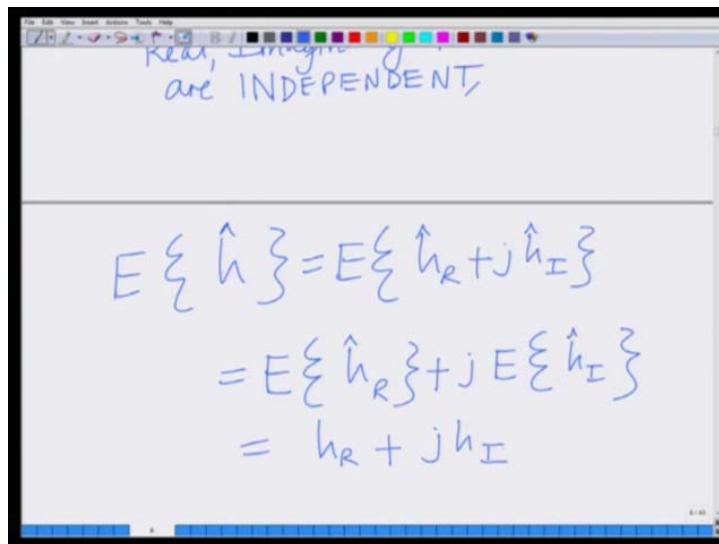 File Edit View Insert Actions Tools Help
Real,
are INDEPENDENT,
E{ĥ} = E{ĥ_R + jĥ_I}
= E{ĥ_R} + j E{ĥ_I}
= h_R + j h_I